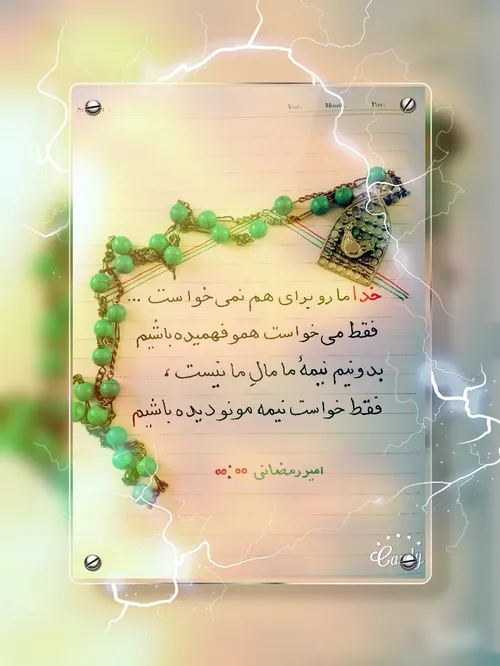 Year. Month. Day.
خدا ما رو برای هم نمی‌خواست ...
فقط می‌خواست همو فهمیده باشیم
بدونیم نیمهٔ ما مالِ ما نیست ،
فقط خواست نیمه مونو دیده باشیم
امیر رمضانی ۰۰:۰۰
Candy